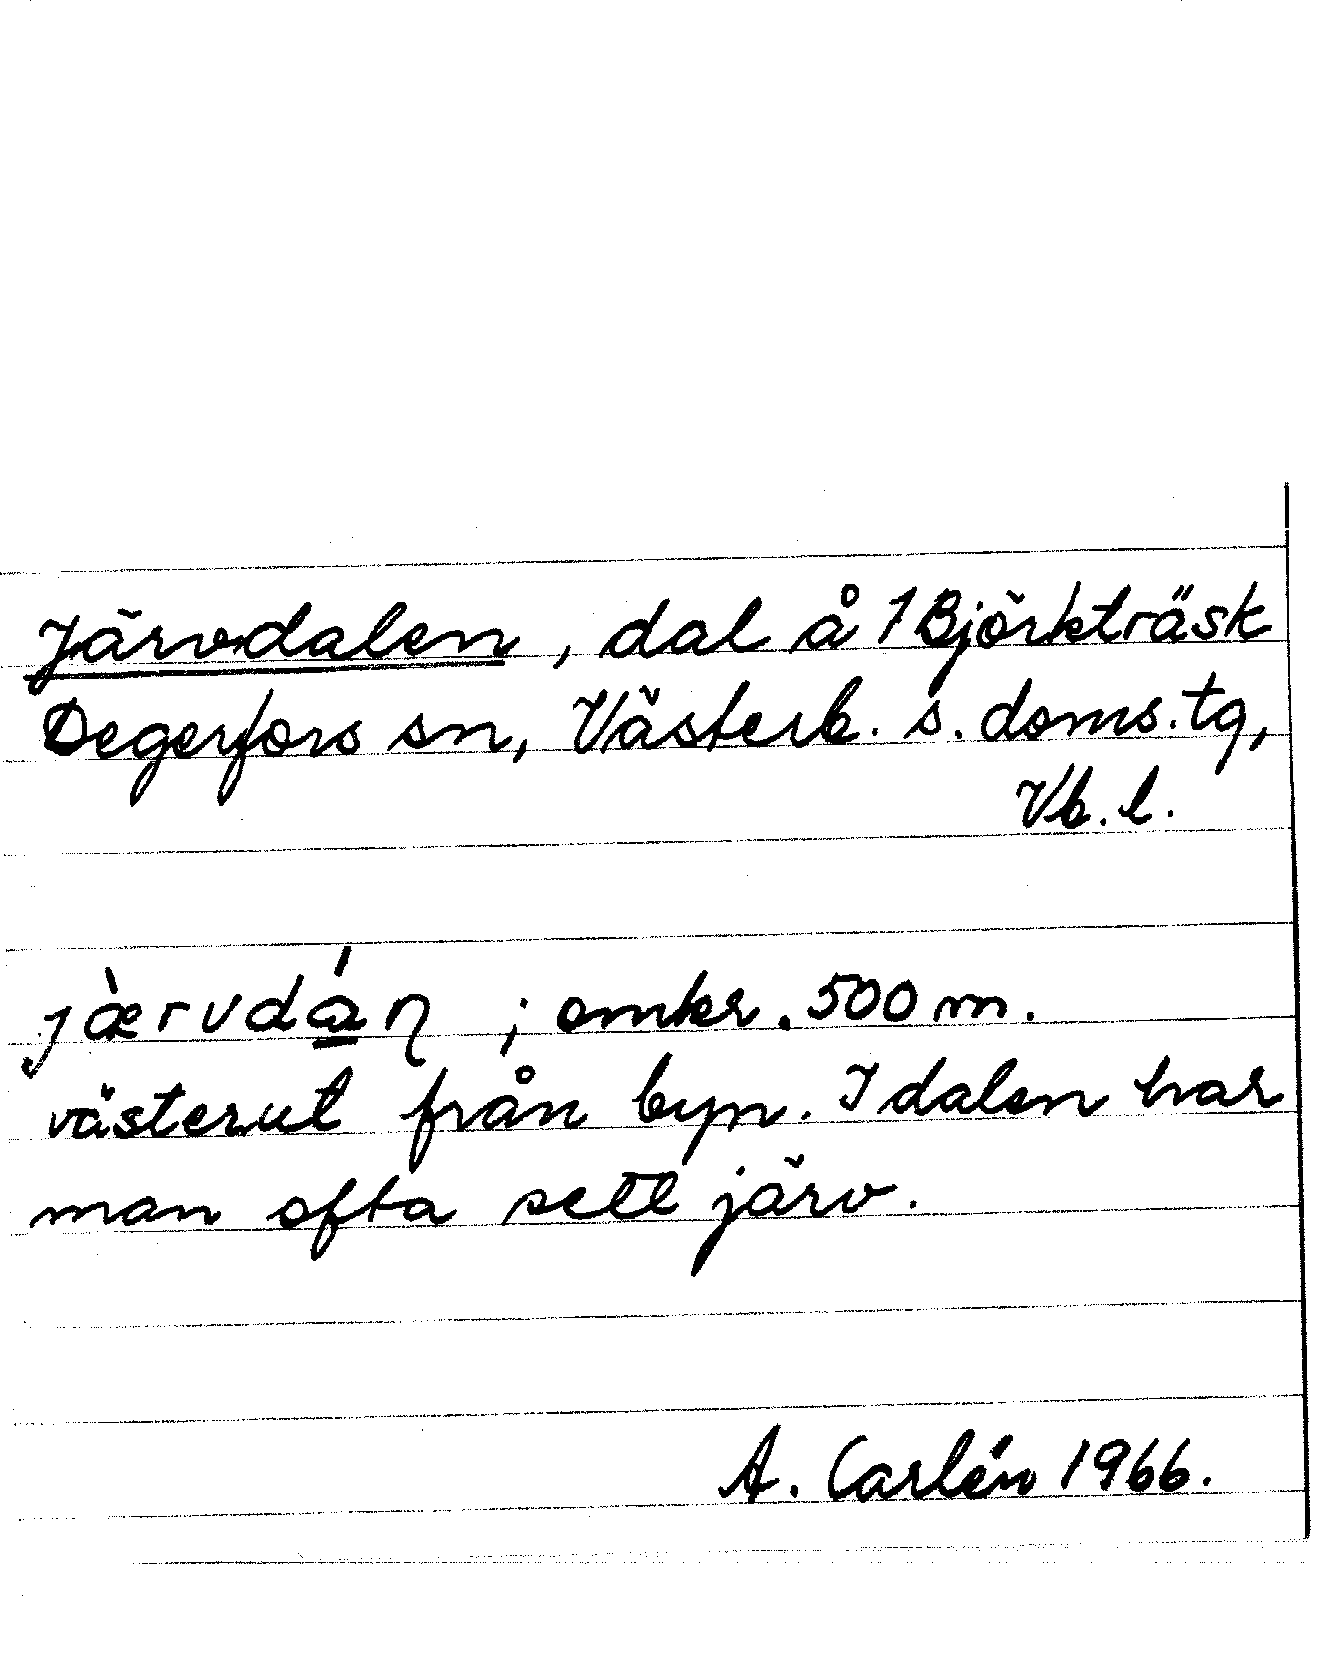 Järvdalen, dal å 1 Björkträsk
Degerfors sn, Västerb. s. doms. tg,
Vb. l.
jæ̀rvdá̱ɳ ; omkr. 500 m.
västerut från byn. I dalen har
man ofta sett järv.
A. Carlén 1966.